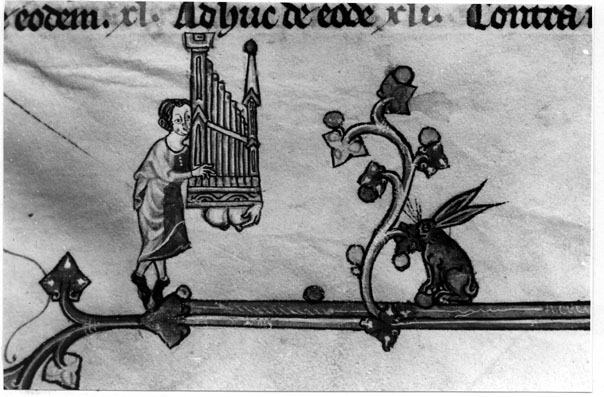 eodem. xl. Adhuc de eode xli. Contra